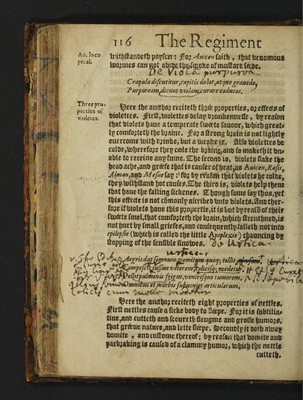 116 The Regiment
Ad. loco
precal.
withstandeth poyson: For Auicen saith, that venomous
wormes can not abyde the smoke of mustard sede.
De Viola purpurea
Crapula discutitur, capitis dolor, atque grauedo,
Purpuream dicunt violam, curare caducos.
Three pro-
perties of
violettes.
Here the author reciteth three properties, or effects of
violettes. First, violettes delay dronkennesse, by reason
that violets haue a temperate swete sauour, which great-
ly comforteth the braine. For a strong brain is not lightly
ouercome with drinke, but a weake is. Also violettes be
colde, wherefore they coole the brayne, and so make it vn-
able to receiue any fume. The second is, violets slake the
head ache, and greefe that is cause of heat, as Auicen, Rasis,
Alman. and Mesue say: for by reason that violets be colde,
they withstand hot causes. The third is, violets help them
that haue the falling sicknes. Though some say thus, yet
this effecte is not commonly ascribed vnto violets. And ther-
fore if violets haue this propertie, it is but by reason of their
sweete smel, that comforteth the brain, which strengthned, is
not hurt by small griefes, and consequently falleth not into
epilepsie (which is called the little Apoplexie) chauncing by
stopping of the sensible sinowes.
De Urtica
Aegris dat somnum, vomitum quoque tollit
Compescit tussim veterem, colicisque medetur,
Pellit pulmonis frigus, ventrisque tumorem,
Omnibus et morbis subuenit articulorum.
Here the author reciteth eight properties of nettles.
First nettles cause a sicke body to sleepe. For it is subtilia-
tiue, and cutteth and scoureth fleugme and grosse humors,
that greeue nature, and lette sleepe. Secondly it doth away
vomite, and custome thereof; by reason that vomite and
parbraking is cause of a clammy humor, which the nettle
cutteth.